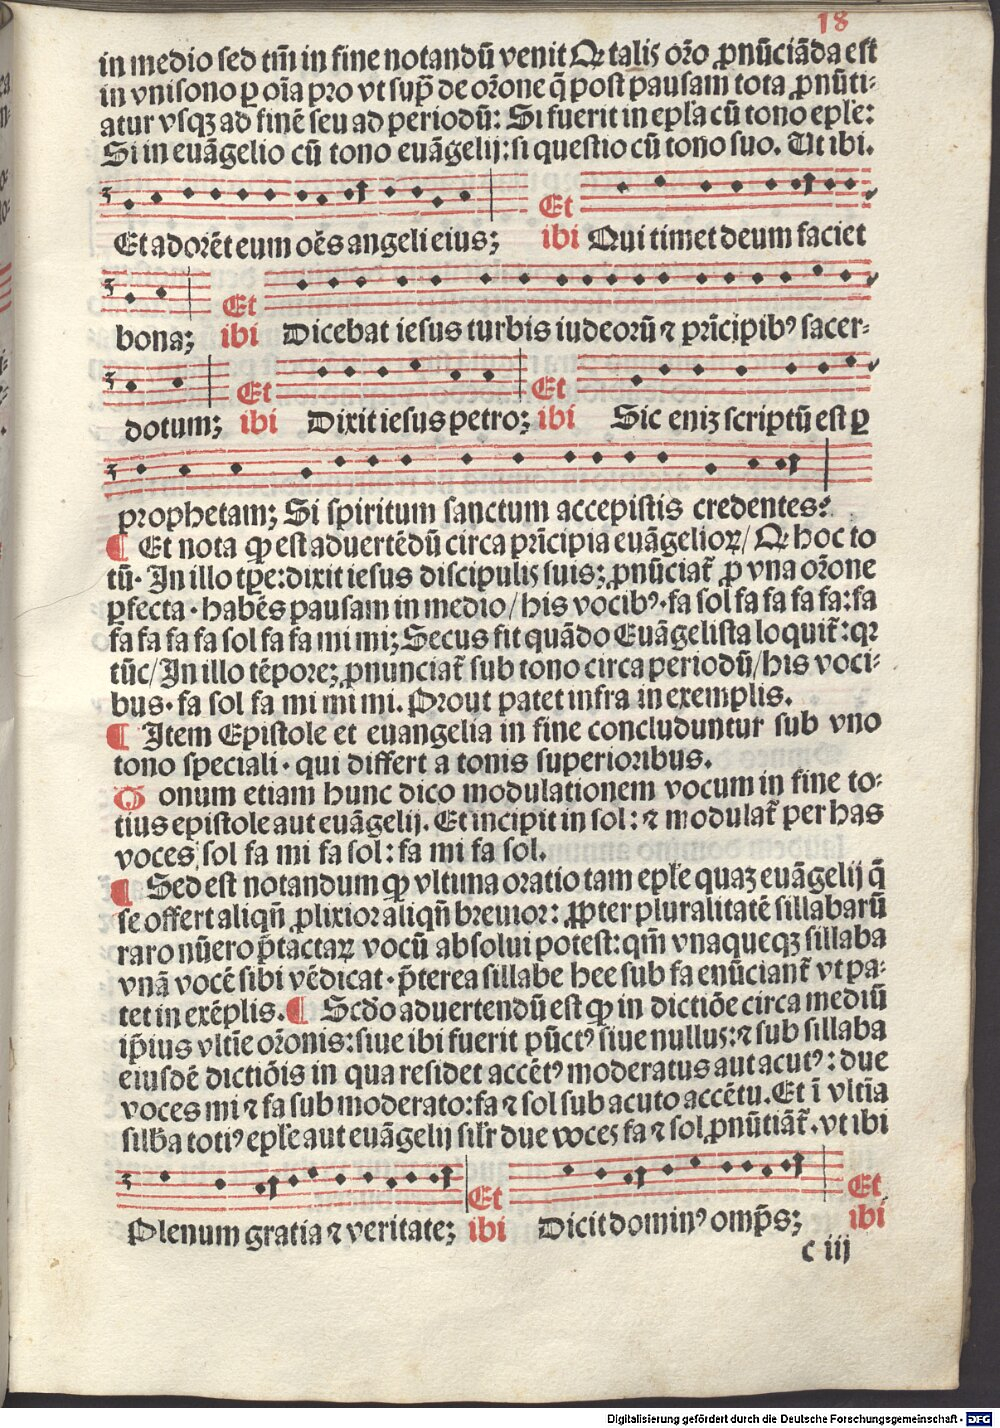 18
in medio sed tm̄ in fine notandū venit Qꝛ talis oꝛ̄o ꝓnūciāda est
in vnisono ꝑ oīa pro vt sup̄ de oꝛ̄one q̄ post pausam tota ꝓnūti⸗
atur vsqꝫ ad finē seu ad periodū: Si fuerit in epl̄a cū tono epl̄e:
Si in euāgelio cū tono euāgelij: si questio cū tono suo. Ut ibi.
Et adorēt eum oēs angeli eius; Et ibi Qui timet deum faciet
bona; Et ibi Dicebat iesus turbis iudeorū ⁊ prīcipibꝰ sacer⸗
dotum; Et ibi Dixit iesus petro; Et ibi Sic eniꝫ scriptū est ꝑ
prophetam; Si spiritum sanctum accepistis credentes?
¶ Et nota ꝙ est aduertēdū circa prīcipia euāgelioꝝ/ Qꝛ hoc to
tū. In illo tꝑe: dixit iesus discipulis suis; ꝓnūciat᷑ ꝓ vna oꝛ̄one
ꝑfecta. habēs pausam in medio/ his vocibꝰ. fa sol fa fa fa fa: fa
fa fa fa fa sol fa fa mi mi; Secus fit quādo Euāgelista loquit᷑: qꝛ
tūc/ In illo tēpore; ꝓnunciat᷑ sub tono circa periodū/ his voci⸗
bus. fa sol fa mi mi mi. Prout patet infra in exemplis.
¶ Item Epistole et euangelia in fine concluduntur sub vno
tono speciali. qui differt a tonis superioribus.
Tonum etiam hunc dico modulationem vocum in fine to⸗
tius epistole aut euāgelij. Et incipit in sol: ⁊ modulat᷑ per has
voces sol fa mi fa sol: fa mi fa sol.
¶ Sed est notandum ꝙ vltima oratio tam epl̄e quaꝫ euāgelij q̄
se offert aliqn̄ ꝓlixior aliqn̄ breuior: ꝓpter pluralitatē sillabarū
raro nūero p̄tactaꝝ vocū absolui potest: qm̄ vnaqueqꝫ sillaba
vnā vocē sibi vēdicat. p̄terea sillabe hee sub fa enūciant᷑ vt pa⸗
tet in exēplis. ¶ Scd̄o aduertendū est ꝙ in dictiōe circa mediū
ip̄ius vltīe oꝛ̄onis: siue ibi fuerit pūctꝰ siue nullus: ⁊ sub sillaba
eiusdē dictiōis in qua residet accētꝰ moderatus aut acutꝰ: due
voces mi ⁊ fa sub moderato: fa ⁊ sol sub acuto accētu. Et ī vltīa
sillb̄a totiꝰ epl̄e aut euāgelij sil̄r due voces fa ⁊ sol ꝓnūtiāt᷑. vt ibi
Plenum gratia ⁊ veritate; Et ibi Dicit dominꝰ omp̄s; Et ibi
c iij
Digitalisierung gefördert durch die Deutsche Forschungsgemeinschaft - DFG